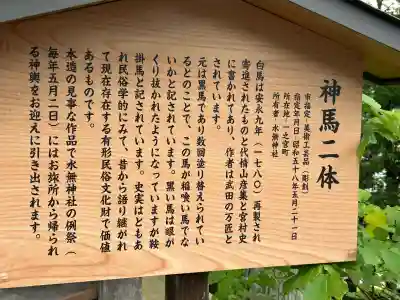 神馬二体
市指定 美術工芸品(彫刻)
指定年月日 昭和五十八年五月二十一日
所在地 一之宮町
所有者 水無神社
白馬は安永九年(一七八〇)再製され
寄進されたものと代情山彦墓と宮村史
に書かれてあり、作者は武田の万匠と
されています。
元は黒馬であり数回塗り替えられてい
るとのことで、この馬が稲喰い馬でな
いかと記されています。黒い馬は眼が
くり抜かれたようになっていますが鞍
掛馬と記されています。史実はともあ
れ民俗学的にみて、昔から語り継がれ
て現存される有形民俗文化財で価値
あるものです。
木造の見事な作品で水無神社の例祭(
毎年五月二日)にはお旅所から帰られ
る神輿をお迎えに引き出されます。